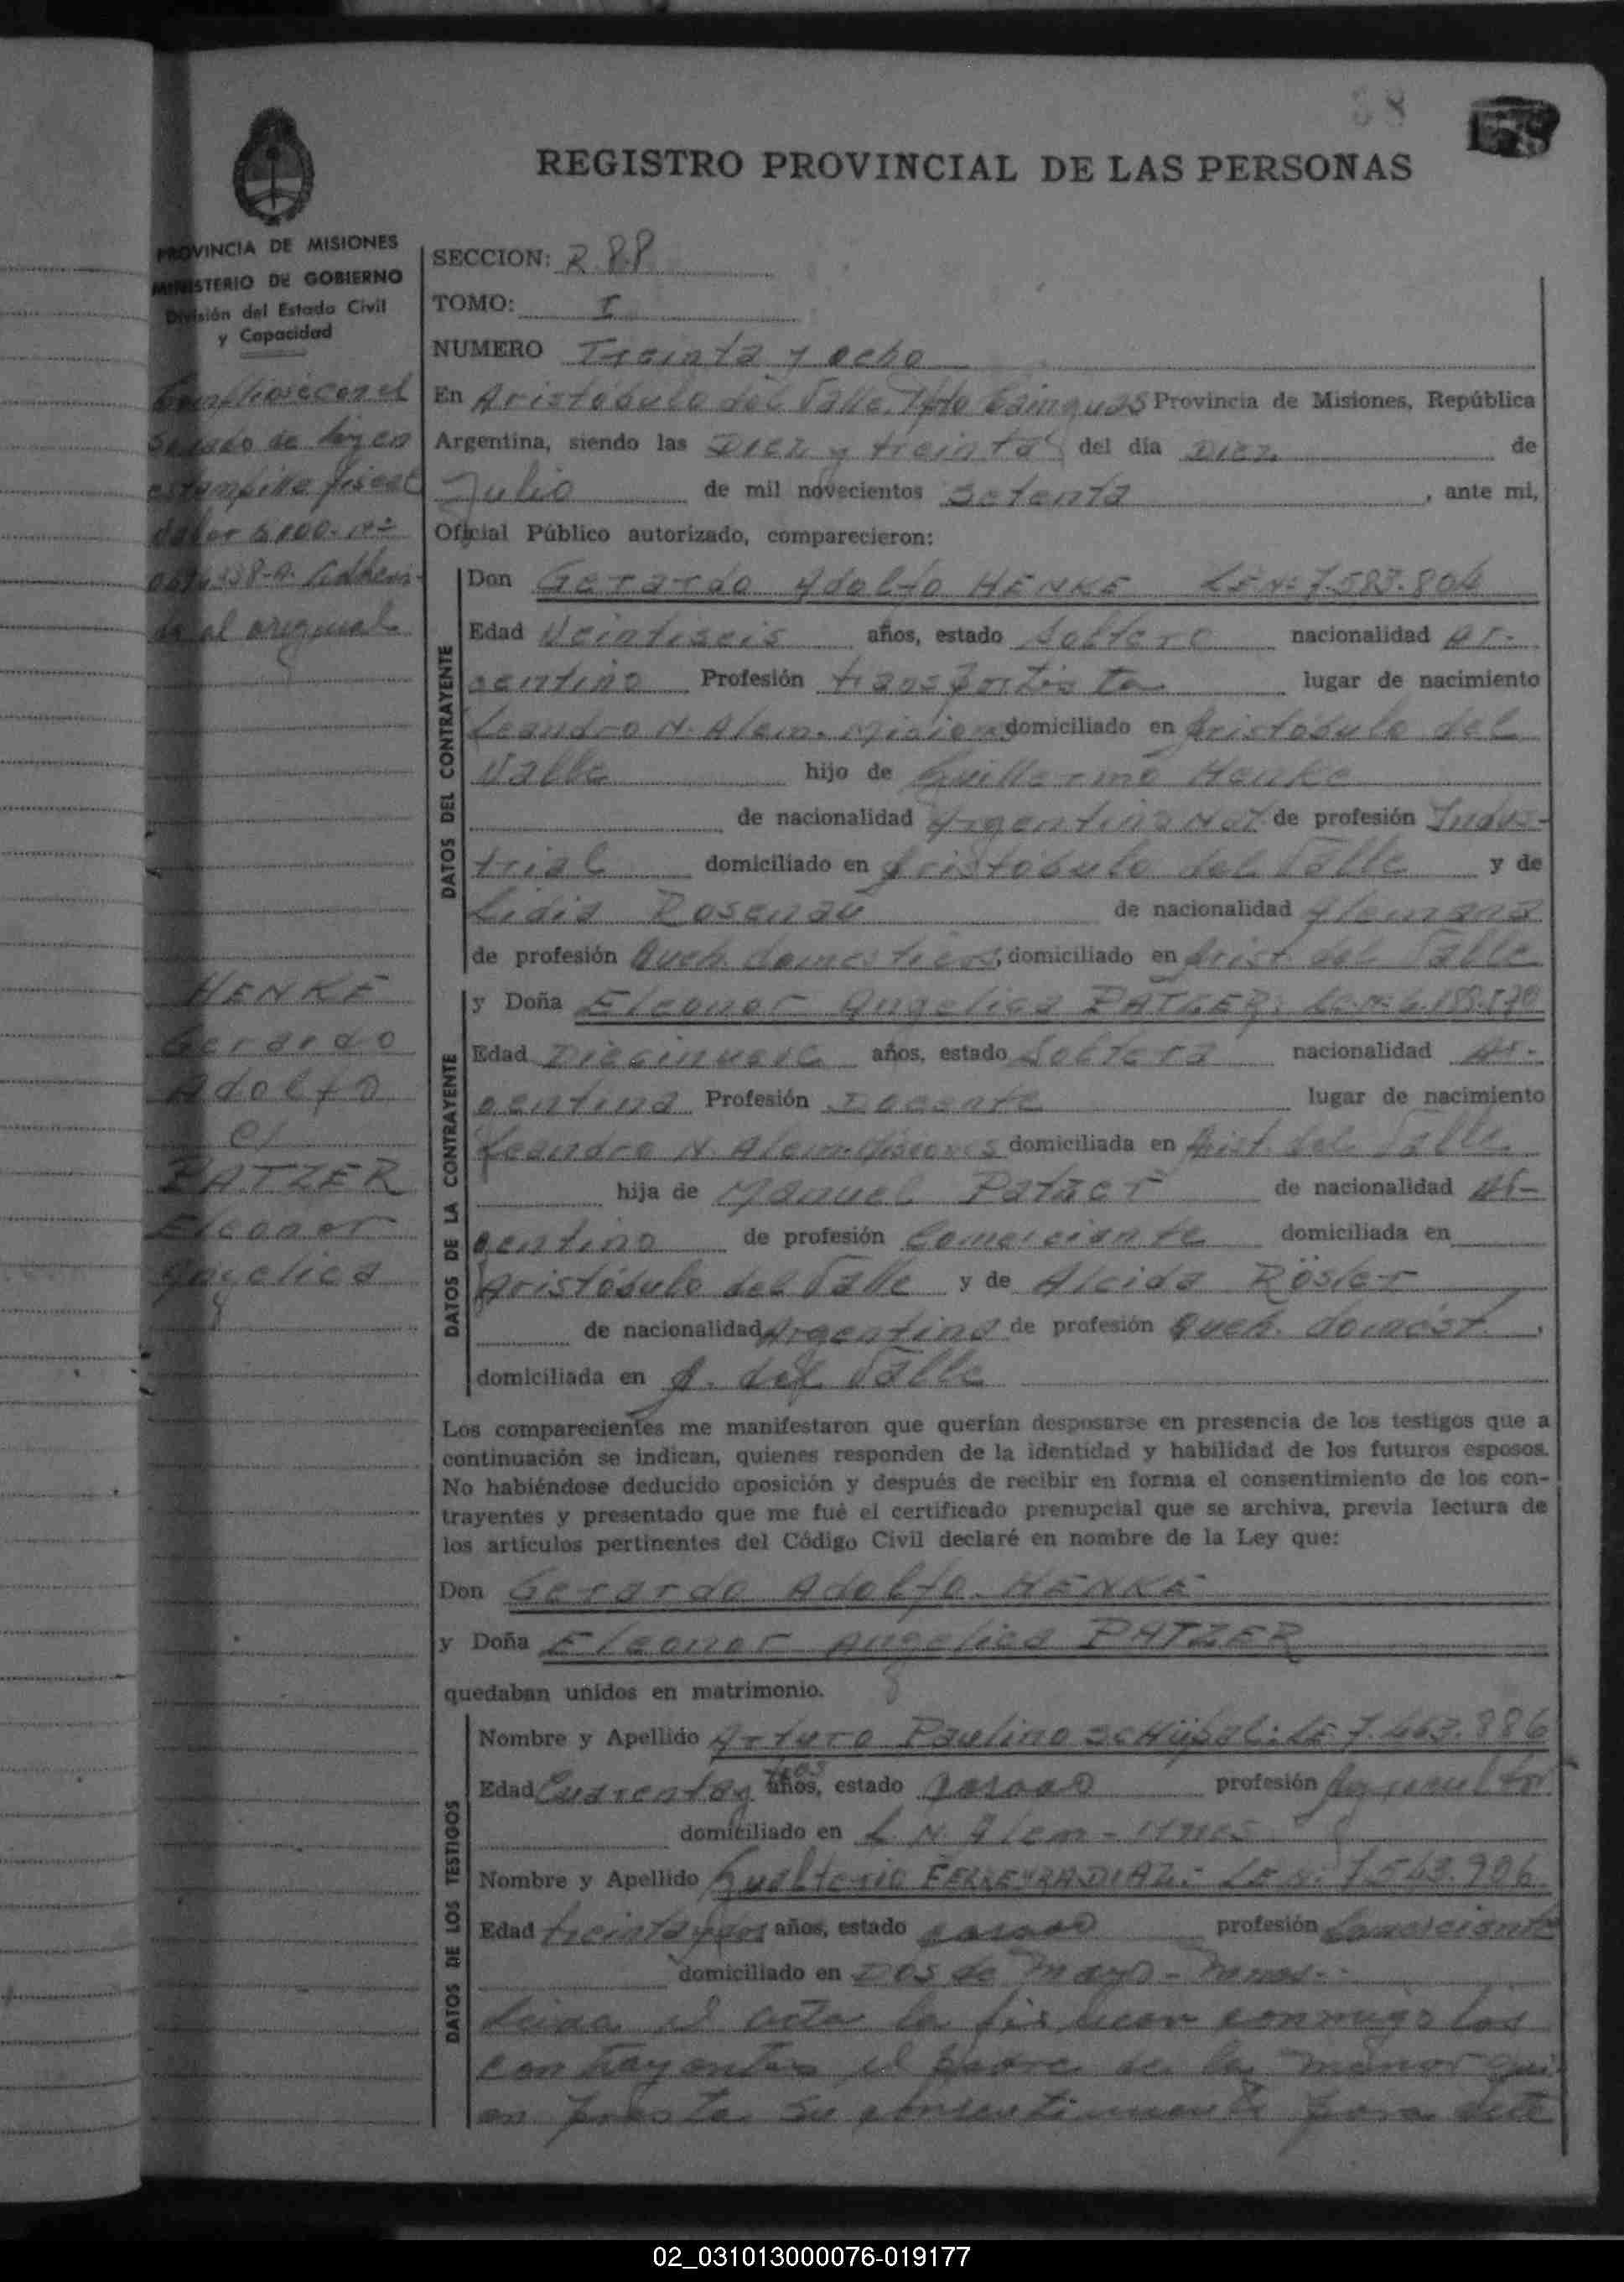 38
REGISTRO PROVINCIAL DE LAS PERSONAS
PROVINCIA DE MISIONES
MINISTERIO DE GOBIERNO
División del Estado Civil
y Capacidad
SECCION: R 88
TOMO: I
NUMERO Treinta y ocho
En Aristóbulo del Valle, Dpto Cainguas Provincia de Misiones, República
Argentina, siendo las Diez y treinta del día Diez de
Julio de mil novecientos Setenta, ante mi,
Oficial Público autorizado, comparecieron:
el
de ley en
estampilla fiscal
valor $ 100.- Nº
al original
DATOS DEL CONTRAYENTE
Don Gerardo Adolfo HENKE LE Nº 7.583.804
Edad Veintiseis años, estado Soltero nacionalidad Ar-
gentino Profesión transportista lugar de nacimiento
Leandro N. Alem. Misiones domiciliado en Aristóbulo del
Valle hijo de Guillermo Henke
de nacionalidad Argentino Nat de profesión Indus-
trial domiciliado en Aristóbulo del Valle y de
Lidia Rosenau de nacionalidad Alemana
de profesión Queh. domesticos, domiciliado en Arist. del Valle
HENKE
Gerardo
Adolfo
c/
PATZER
Eleonor
Angelica
DATOS DE LA CONTRAYENTE
y Doña Eleonor Angelica PATZER: LC. Nº 6.188.570
Edad Diecinueve años, estado Soltera nacionalidad Ar-
gentina Profesión Docente lugar de nacimiento
Leandro N. Alem. Misiones domiciliada en Arist. del Valle
hija de Manuel Patzer de nacionalidad Ar-
gentino de profesión Comerciante domiciliada en
Aristóbulo del Valle y de Alcida Röster
de nacionalidad Argentina de profesión Queh. domést.,
domiciliada en A. del Valle
Los comparecientes me manifestaron que querían desposarse en presencia de los testigos que a
continuación se indican, quienes responden de la identidad y habilidad de los futuros esposos.
No habiéndose deducido oposición y después de recibir en forma el consentimiento de los con-
trayentes y presentado que me fué el certificado prenupcial que se archiva, previa lectura de
los artículos pertinentes del Código Civil declaré en nombre de la Ley que:
Don Gerardo Adolfo HENKE
y Doña Eleonor Angelica PATZER
quedaban unidos en matrimonio.
DATOS DE LOS TESTIGOS
Nombre y Apellido Arturo Paulino SCHÜBAL: LE 7.463.886
Edad Cuarenta y años, estado casado profesión Agricultor
domiciliado en L. N. Alem - Mnes
Nombre y Apellido Gualterio FERREYRA DIAZ: LE N. 7.543.906
Edad treinta y dos años, estado casado profesión Comerciante
domiciliado en Dos de Mayo - Mnes.-
Leida el acta la firman conmigo los
contrayentes el padre de la menor qui-
en presta su consentimiento para este
02_031013000076-019177